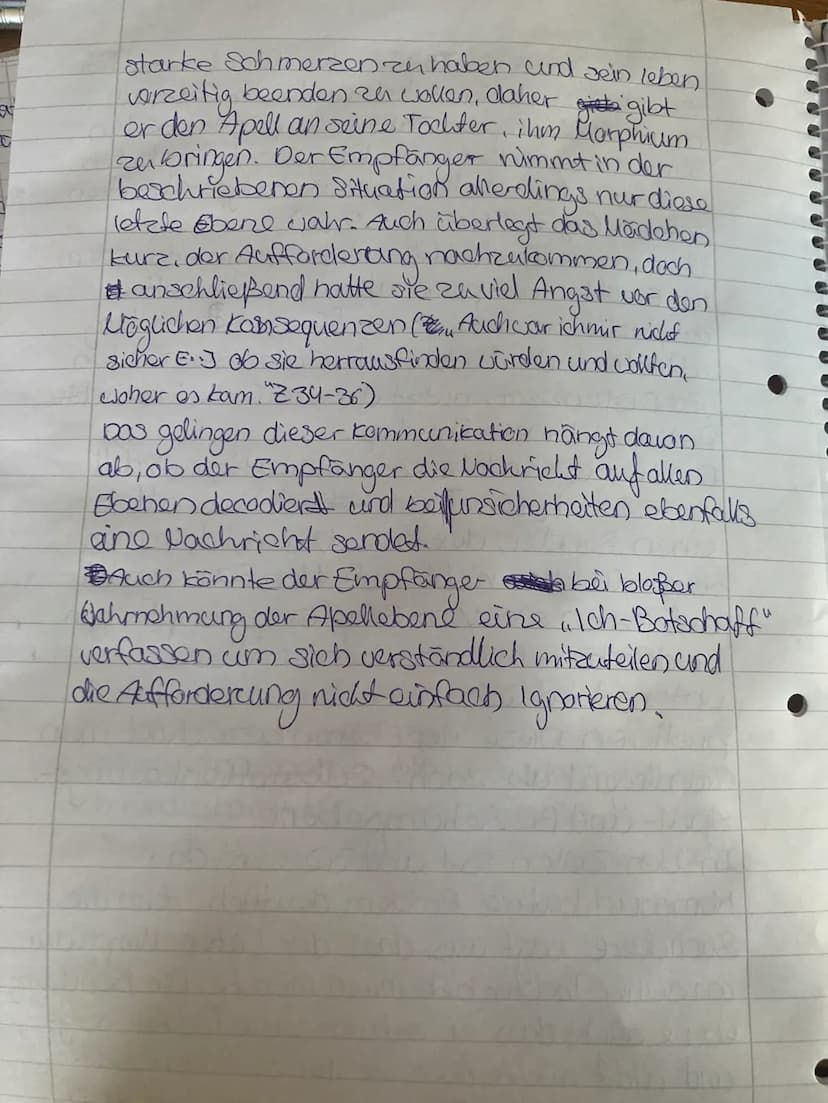 starke Schmerzen zu haben und sein leben
vorzeitig beenden zu wollen, daher gibt
er den Apell an seine Tochter, ihm Morphium
zu bringen. Der Empfänger nimmt in der
beschriebenen Situation allerdings nur diese
letzte Ebene wahr. Auch überlegt das Mädchen
kurz, der Aufforderung nachzukommen, doch
anschließend hatte sie zu viel Angst vor den
Möglichen Konsequenzen („Auch war ich mir nicht
sicher [..] ob sie herrausfinden würden und wollten,
woher es kam." Z 34-36)
Das gelingen dieser Kommunikation hängt davon
ab, ob der Empfänger die Nachricht auf allen
Ebenen decodiert und bei unsicherheiten ebenfalls
eine Nachricht sendet.
Auch könnte der Empfänger bei bloßer
Wahrnehmung der Apellebene eine „Ich-Botschaft"
verfassen um sich verständlich mitzuteilen und
die Aufforderung nicht einfach Ignorieren.